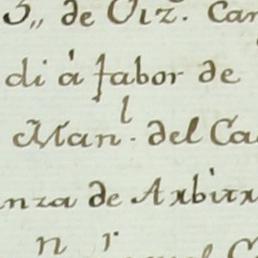 3,, de Viz. Car
di á fabor de
Man.l del Ca
nza de Arbitr
n r